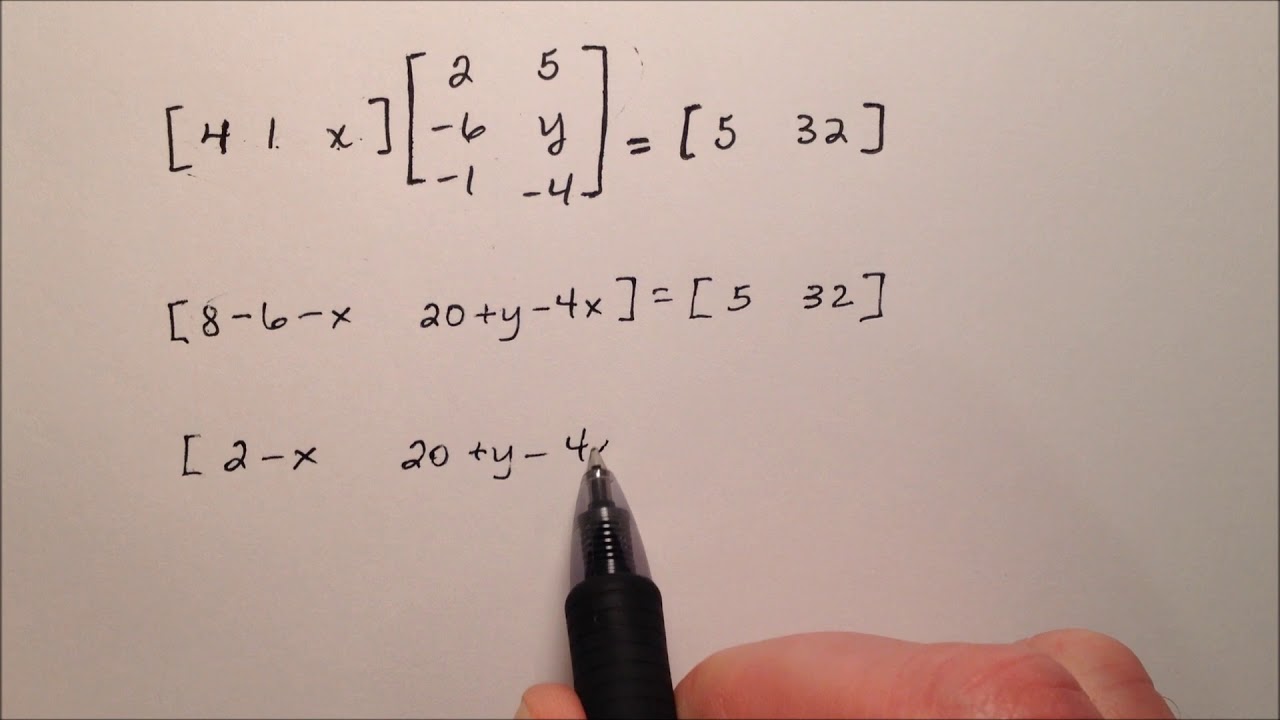 [4 1 x] [2 5
-6 y
-1 -4] = [5 32]
[8-6-x 20+y-4x] = [5 32]
[2-x 20+y-4x